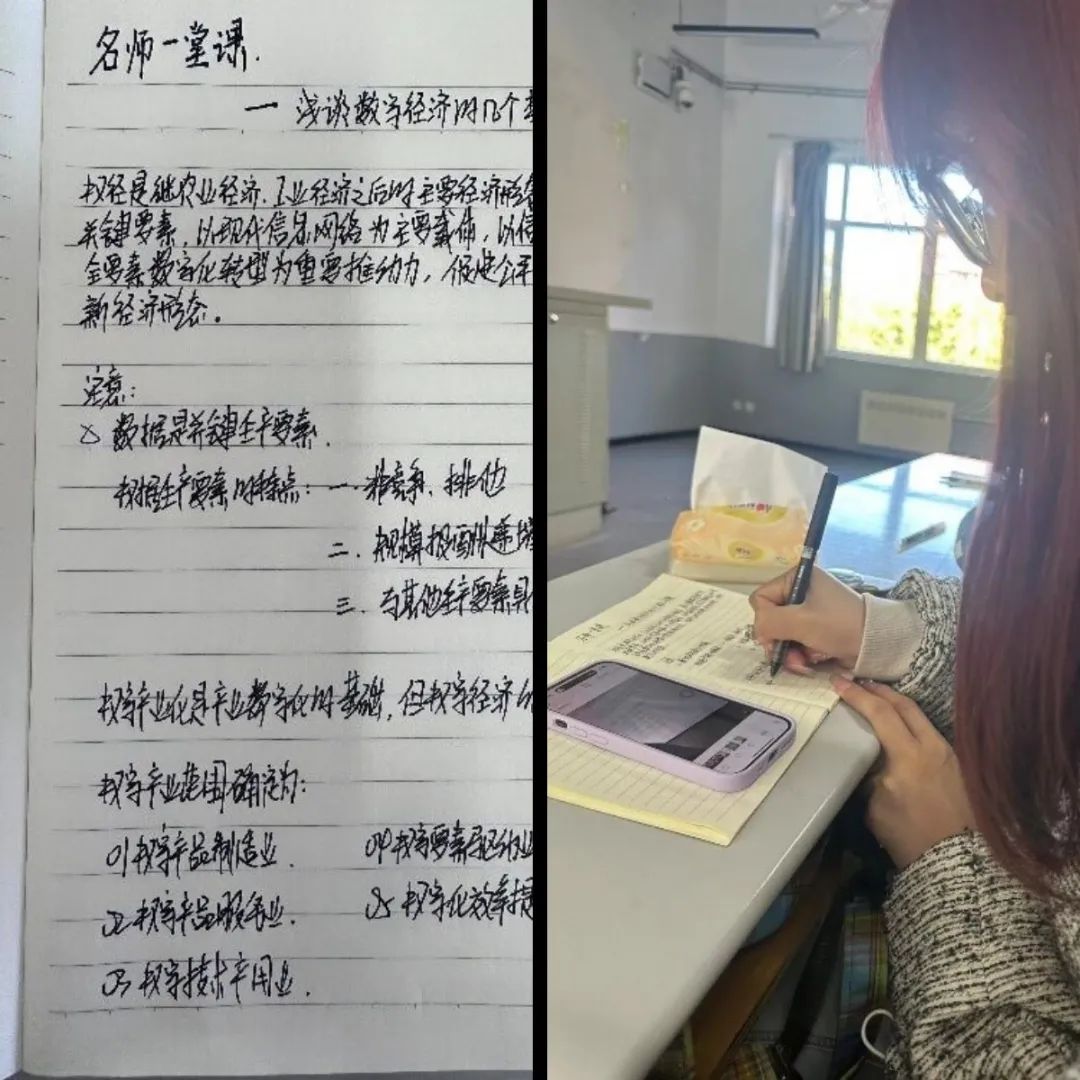 名师一堂课.
一 浅谈数字经济的几个
数经是继农业经济、工业经济之后的主要经济形态
关键要素，以现代信息网络为主要载体，以信
全要素数字化转型为重要推动力，促进公平
新经济形态。
注意：
数据是关键生产要素.
数据生产要素的特点：一. 非竞争、排他
二. 规模报酬递增
三. 与其他生产要素具
数字产业化是产业数字化的基础，但数字经济
数字产业范围确定为：
01 数字产品制造业. 04 数字要素驱动业
02 数字产品服务业. 05 数字化效率提
03 数字技术应用业.
名师一堂课